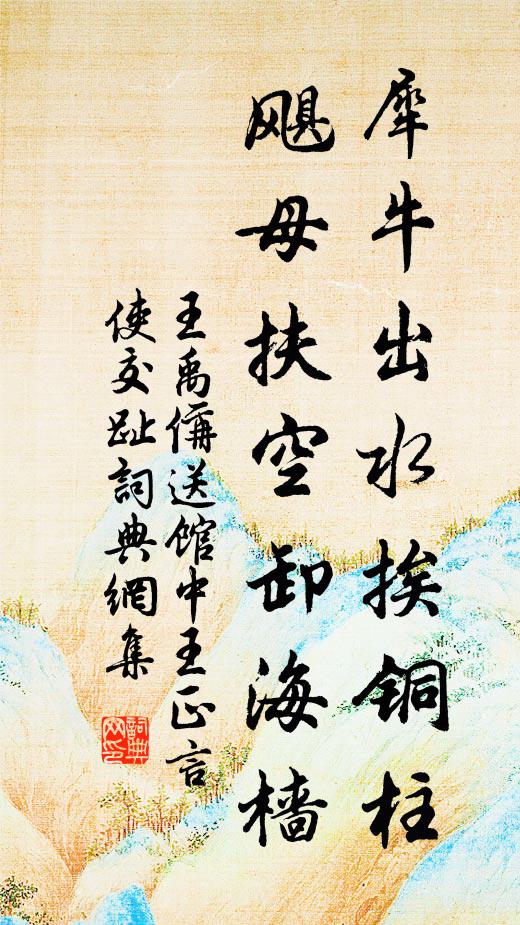 犀牛出水挨铜柱
飓母扶空卸海樯
王禹偁送馆中王正言
使交趾詞典網集
詞典网印